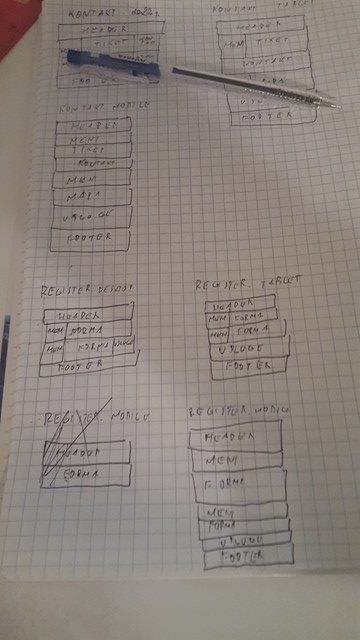 KONTAKT
KONTAKT TABLET
HEADER
TIKET
HEADER
MEM TIKET
KONTAKT
FOOTER
KONTAKT MOBILE
HEADER
MENI
TIKET
KONTAKT
MEM
MAPA
USLOGE
FOOTER
REGISTER DESKOP
HEADER
MEM FORMA
MEM FORMA
FOOTER
REGISTER TABLET
HEADER
MEM FORMA
MEM FORMA
USLUGE
FOOTER
REGISTER MOBILE
HEADER
FORMA
REGISTER MOBILE
HEADER
MEM
FORMA
MEM
FORMA
USLUGE
FOOTER